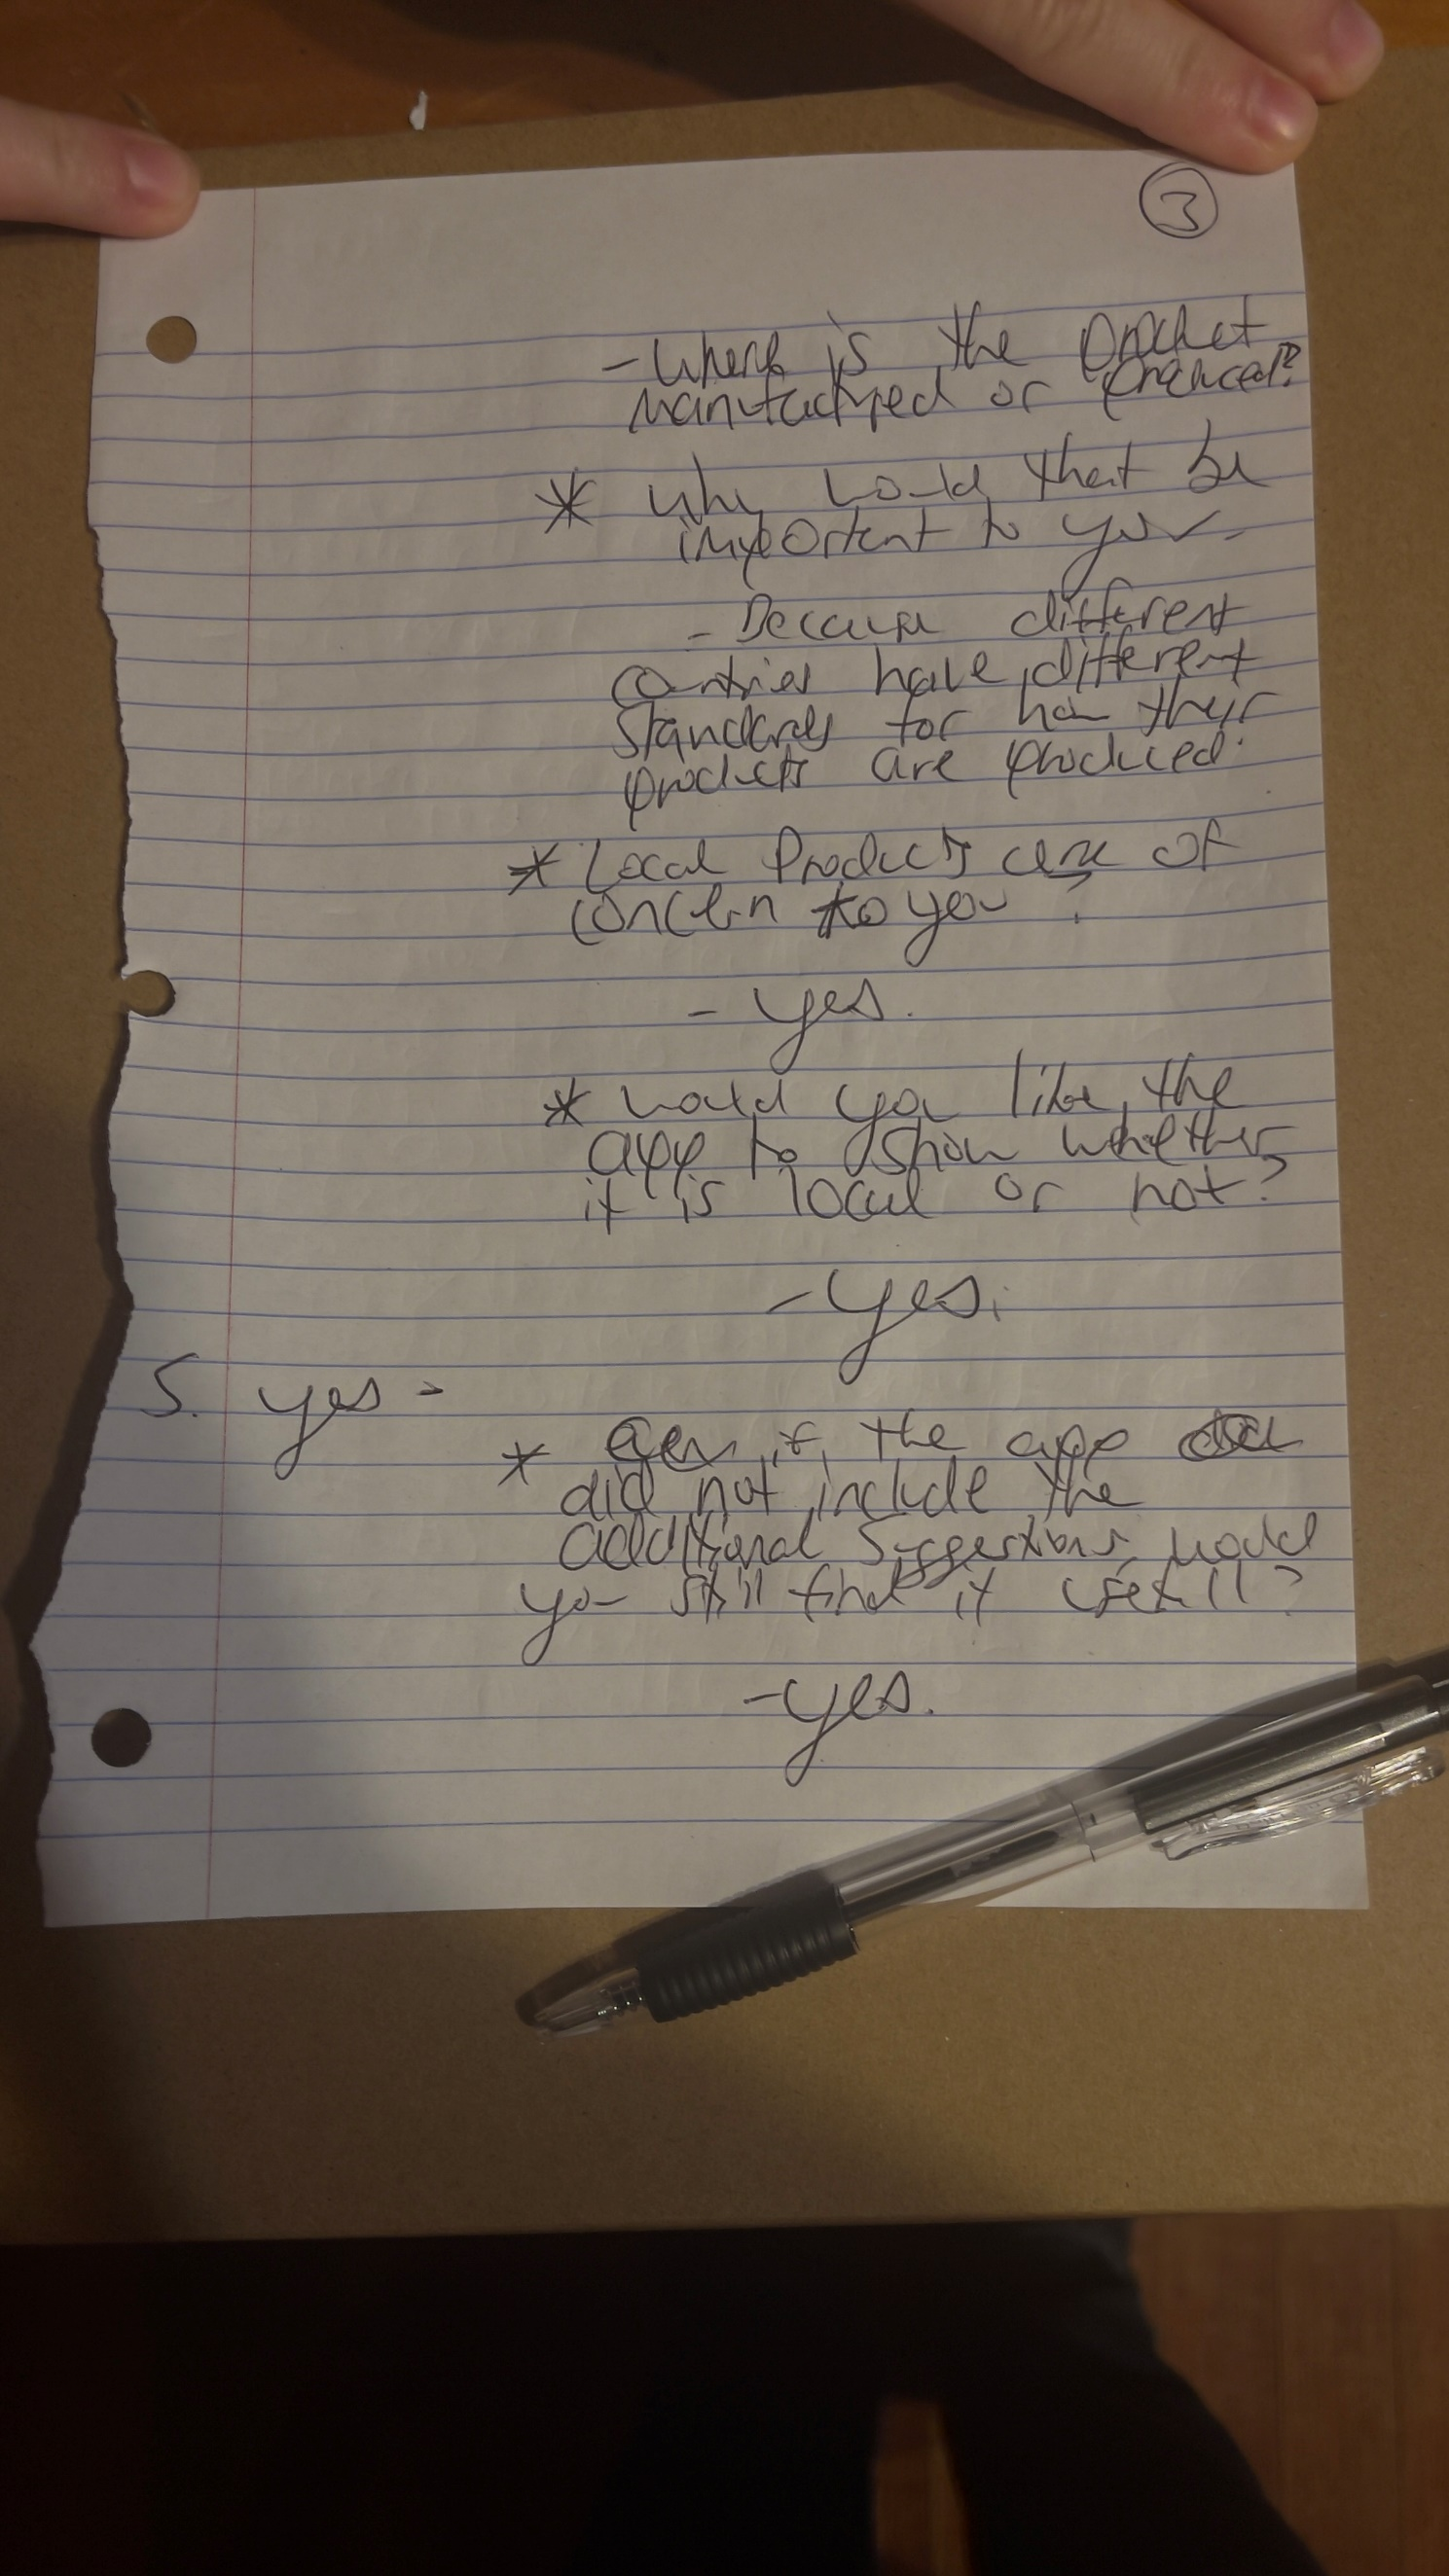 3
- Where is the product
manufactured or produced?
* Why would that be
important to you -
- Because different
countries have different
standards for how their
products are produced.
* Local Products are of
concern to you?
- yes.
* would you like the
app to show whether
it is local or not?
- yes.
5. yes -
* Even if the app
did not include the
additional suggestions would
you still find it usefull?
- yes.